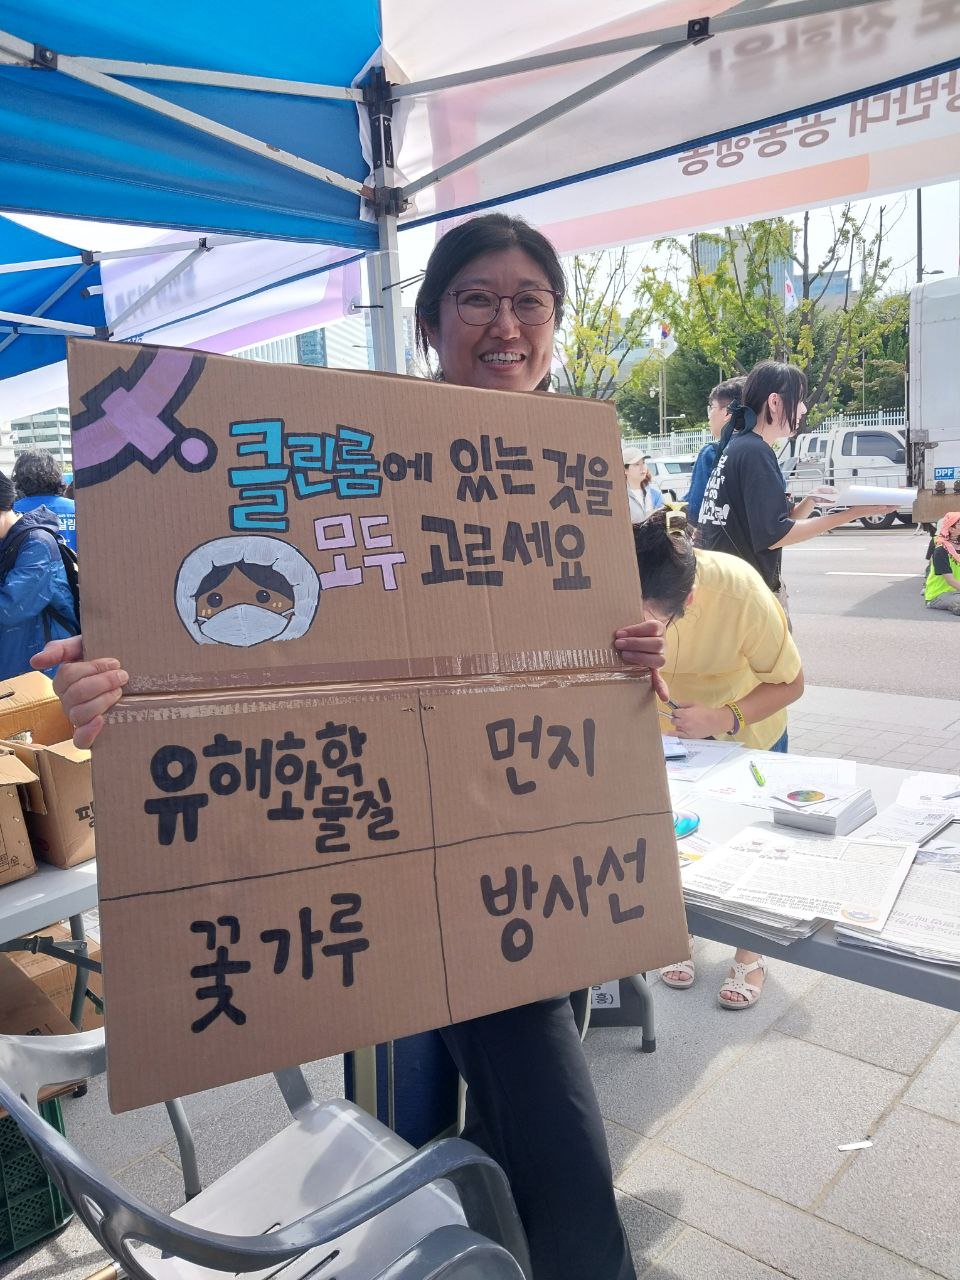 클린룸에 있는 것을
모두 고르세요
유해화학
물질
먼지
꽃가루
방사선
반대 공동행동
DPF